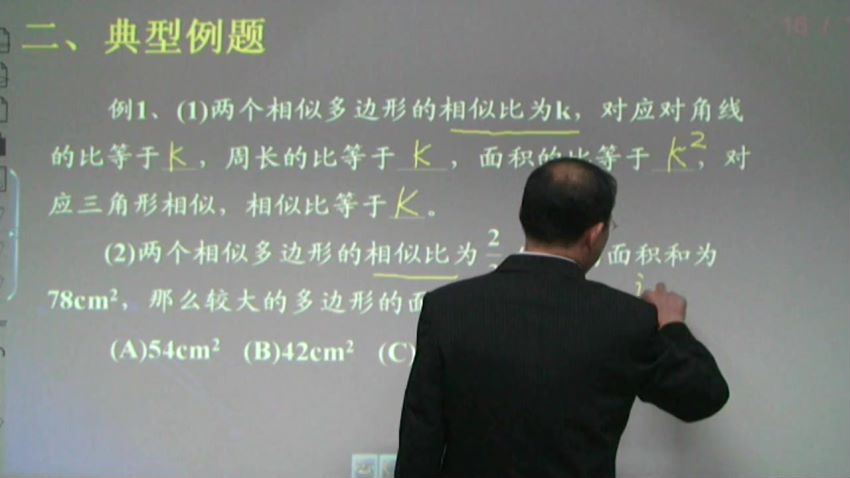 二、典型例题
16 /
例1、(1)两个相似多边形的相似比为k，对应对角线
的比等于 K ，周长的比等于 K ，面积的比等于 K²，对
应三角形相似，相似比等于 K 。
(2)两个相似多边形的相似比为 2 面积和为
78cm²，那么较大的多边形的面
(A)54cm² (B)42cm² (C)